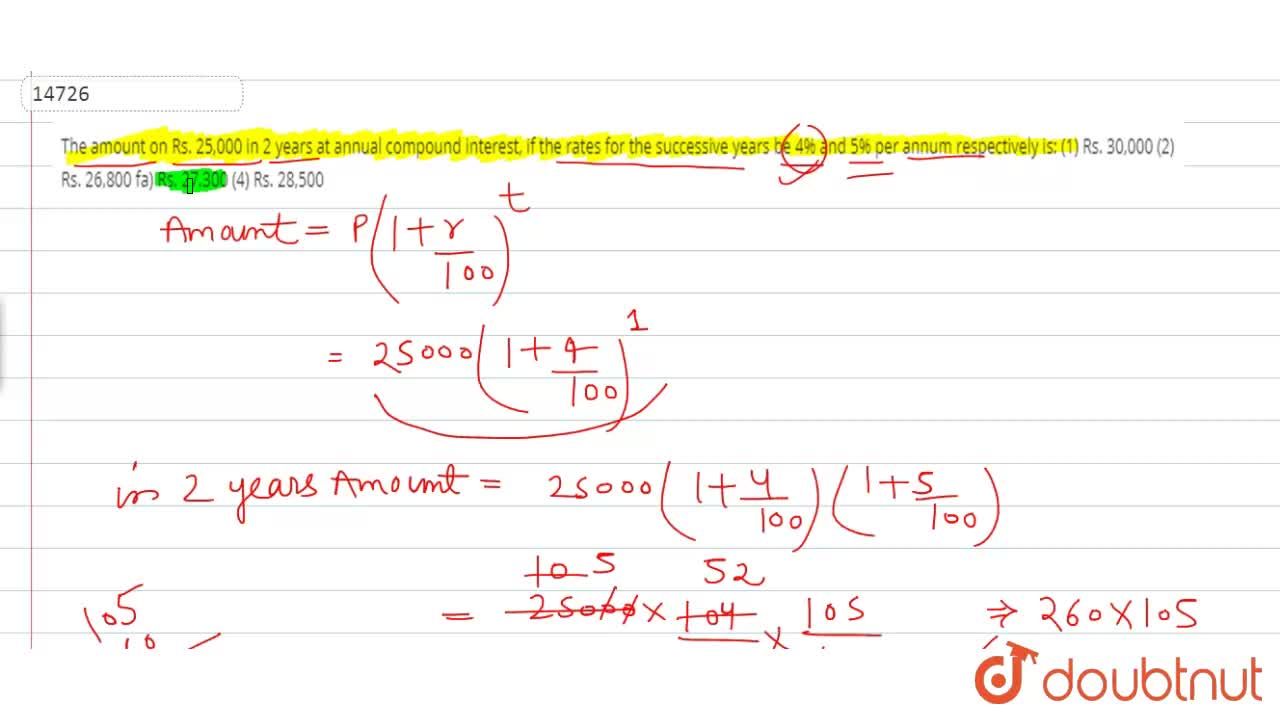 14726
The amount on Rs. 25,000 in 2 years at annual compound interest, if the rates for the successive years be 4% and 5% per annum respectively is: (1) Rs. 30,000 (2)
Rs. 26,800 fa) Rs. 27,300 (4) Rs. 28,500
Amount = P(1+r/100)^t
= 25000(1+4/100)^1
in 2 years Amount = 25000(1+4/100)(1+5/100)
10 5 52
= 25000 × 104 × 105 ⇒ 260×105
105
10
doubtnut